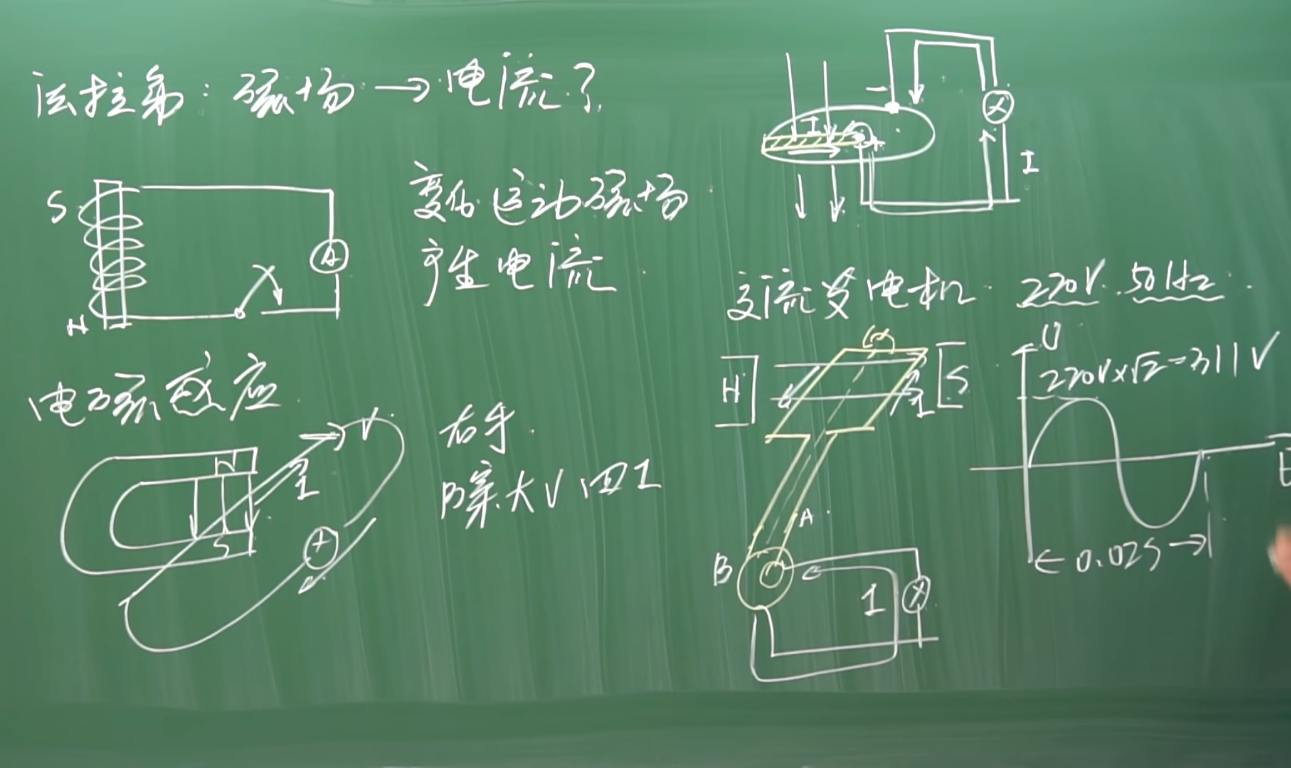 法拉第：磁场→电流？
S
N
A
变化 运动磁场
产生电流
电磁感应
N
S
I
V
右手
B穿大V四I
−
I
+
I
交流发电机 220V 50Hz
N
S
I
A
B
I
U
220V×√2=311V
←0.02S→